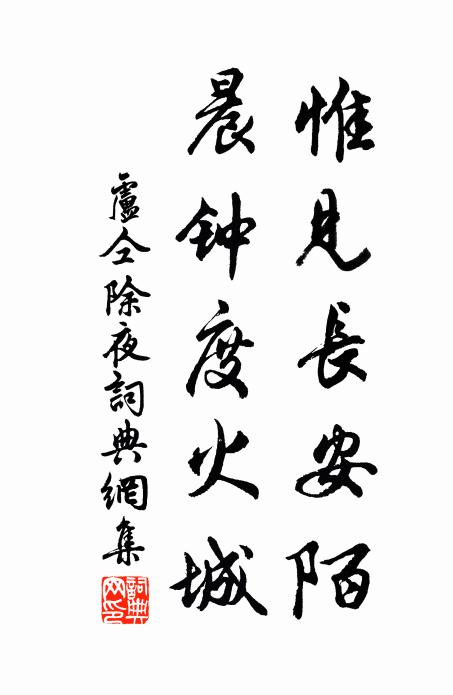 惟見長安陌
晨钟度火城
盧仝除夜詞典網集
詞典网印